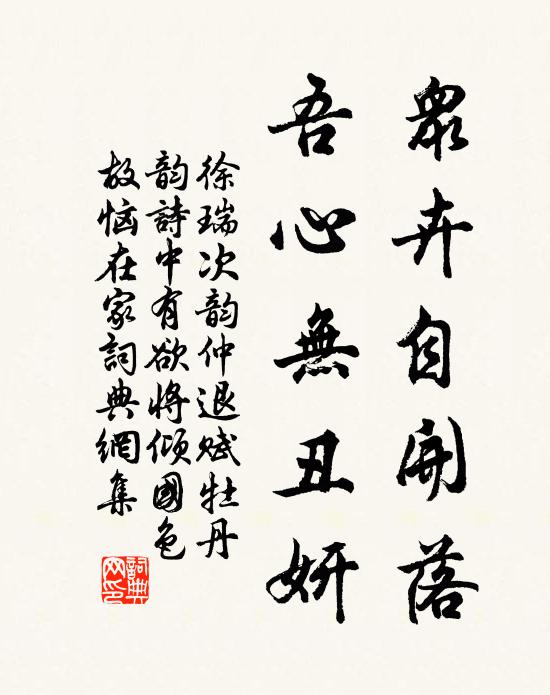 眾卉自開落
吾心無丑妍
徐瑞次韵仲退赋牡丹
韵詩中有欲將傾國色
故惱在家詞典網集
詞典网印